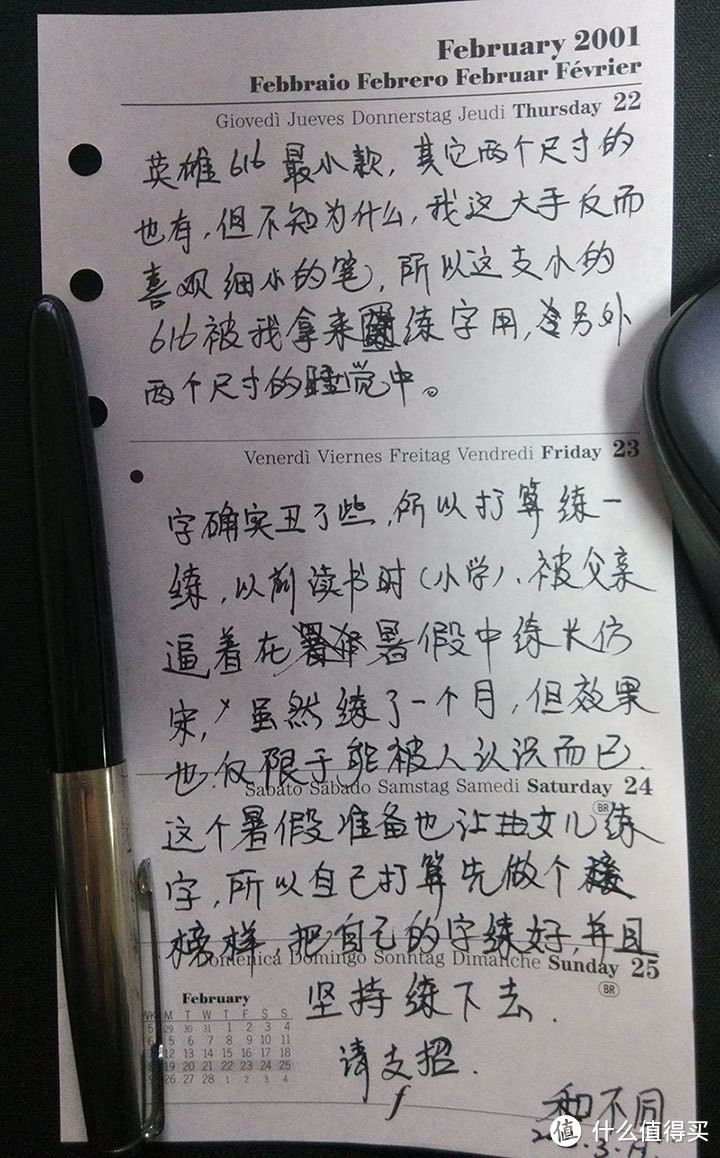 February 2001
Febbraio Febrero Februar Février
Giovedì Jueves Donnerstag Jeudi Thursday 22
英雄616最小款,其它两个尺寸的
也有,但不知为什么,我这大手反而
喜欢细小的笔,所以这支小的
616被我拿来练字用,另外
两个尺寸的睡觉中。
Venerdì Viernes Freitag Vendredi Friday 23
字确实丑了些,所以打算练一
练,以前读书时(小学),被父亲
逼着在暑假中练长仿
宋,虽然练了一个月,但效果
也仅限于能被人认识而已.
Sabato Sábado Samstag Samedi Saturday 24
BR
这个暑假准备也让女儿练
字,所以自己打算先做个
榜样,把自己的字练好,并且
Domenica Domingo Sonntag Dimanche Sunday 25
BR
坚持练下去.
请支招.
February
WK M T W T F S S
5 29 30 31 1 2 3 4
6 5 6 7 8 9 10 11
12 13 14 15 16 17 18
19 20 21 22 23 24 25
26 27 28 1 2 3 4
和不同
值 什么值得买